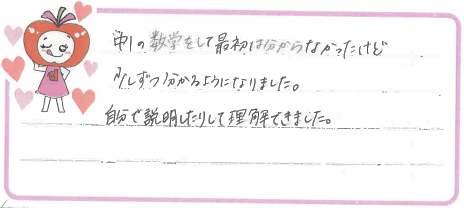 中1の数学をして最初は分からなかったけど
少しずつ分かるようになりました。
自分で説明したりして理解できました。